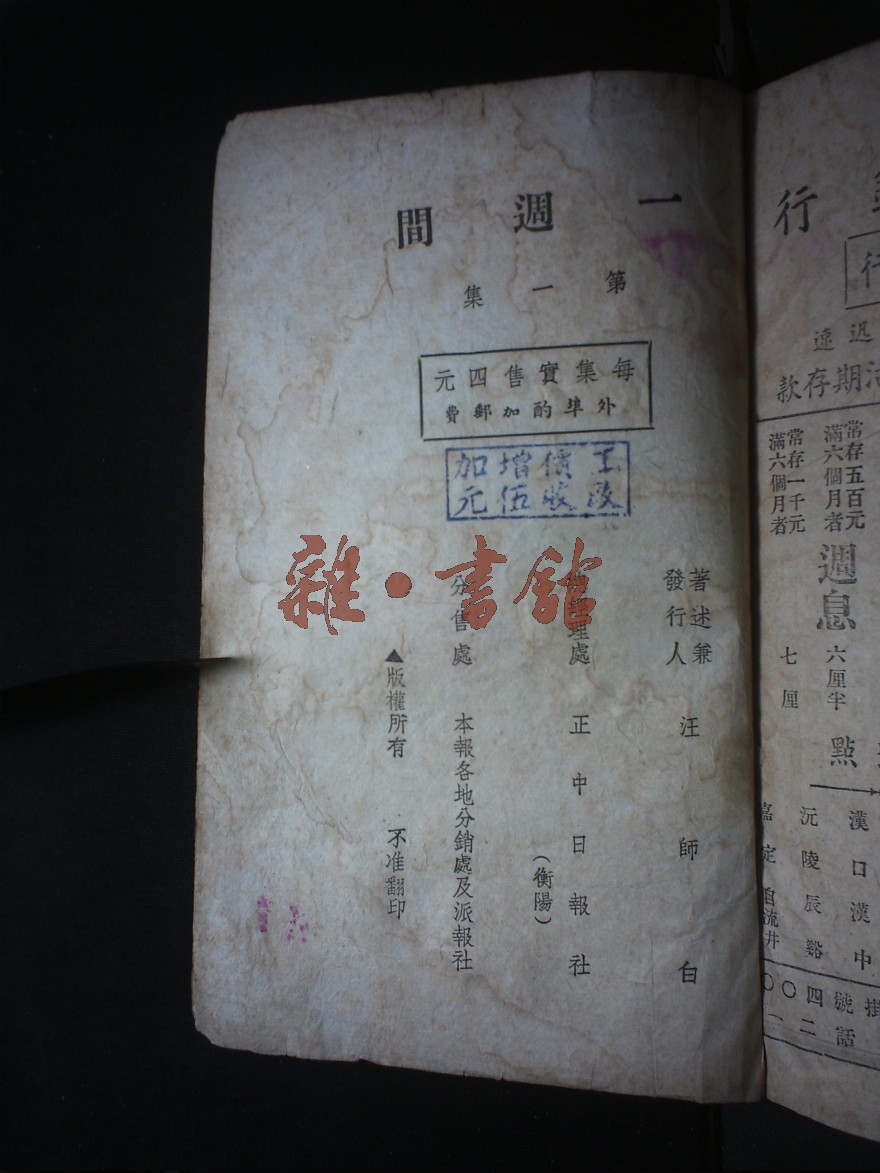 一週間
第一集
每集實售四元
外埠酌加郵費
工價增加
改收伍元
著述兼
發行人 汪師白
理處 正中日報社
(衡陽)
分售處 本報各地分銷處及派報社
▲版權所有 不准翻印
雜·書館
行
行
迅速
活期存款
常存五百元
滿六個月者
常存一千元
滿六個月者
週息
六厘半
七厘
點
漢口漢中
沅陵辰谿
嘉定自流井
掛號四〇〇
話二一